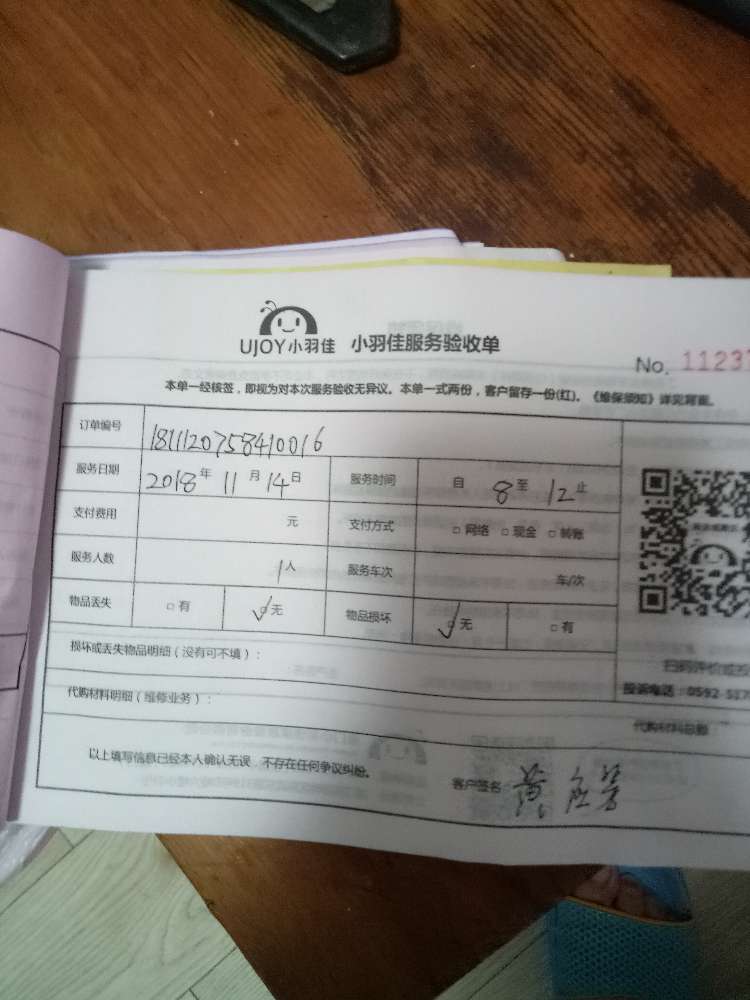 UJOY小羽佳 小羽佳服务验收单
No. 11237
本单一经核签，即视为对本次服务验收无异议。本单一式两份，客户留存一份(红)。《维保须知》详见背面。
订单编号 181112075841 0016
服务日期 2018年 11月 14日 服务时间 自 8 至 12 止
支付费用 元 支付方式 □ 网络 □ 现金 □ 转账
服务人数 1人 服务车次 车/次
物品丢失 □ 有 ☑ 无 物品损坏 ☑ 无 □ 有
损坏或丢失物品明细（没有可不填）：
扫码评价或
投诉电话：0592-517
代购材料明细（维修业务）：
代购材料总额：
以上填写信息已经本人确认无误，不存在任何争议纠纷。
客户签名 黄